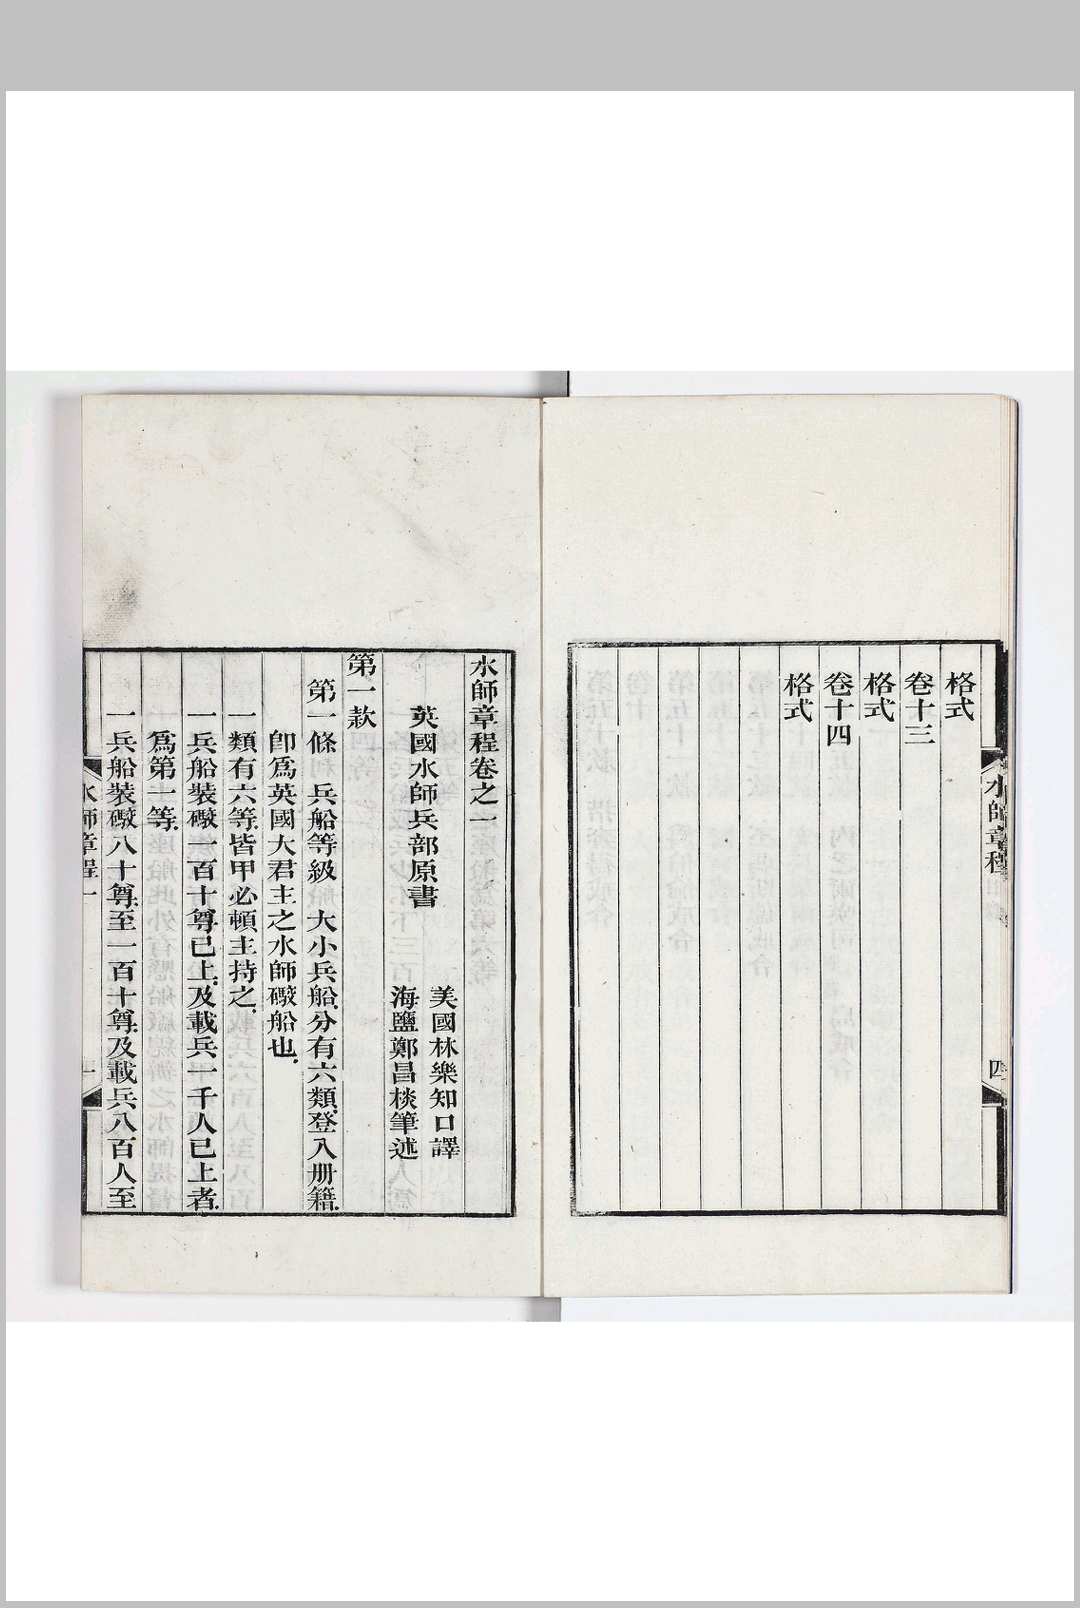 格式
卷十三
格式
卷十四
格式
水師章程
四
水師章程卷之一
英國水師兵部原書
美國林樂知口譯
海鹽鄭昌棪筆述
第一款
第一條 兵船等級 大小兵船分有六類登入册籍
卽爲英國大君主之水師礮船也
一類有六等皆甲必頓主持之
一兵船裝礮一百十尊已上及載兵一千人已上者
爲第一等
一兵船裝礮八十尊至一百十尊及載兵八百人至
水師章程一
一